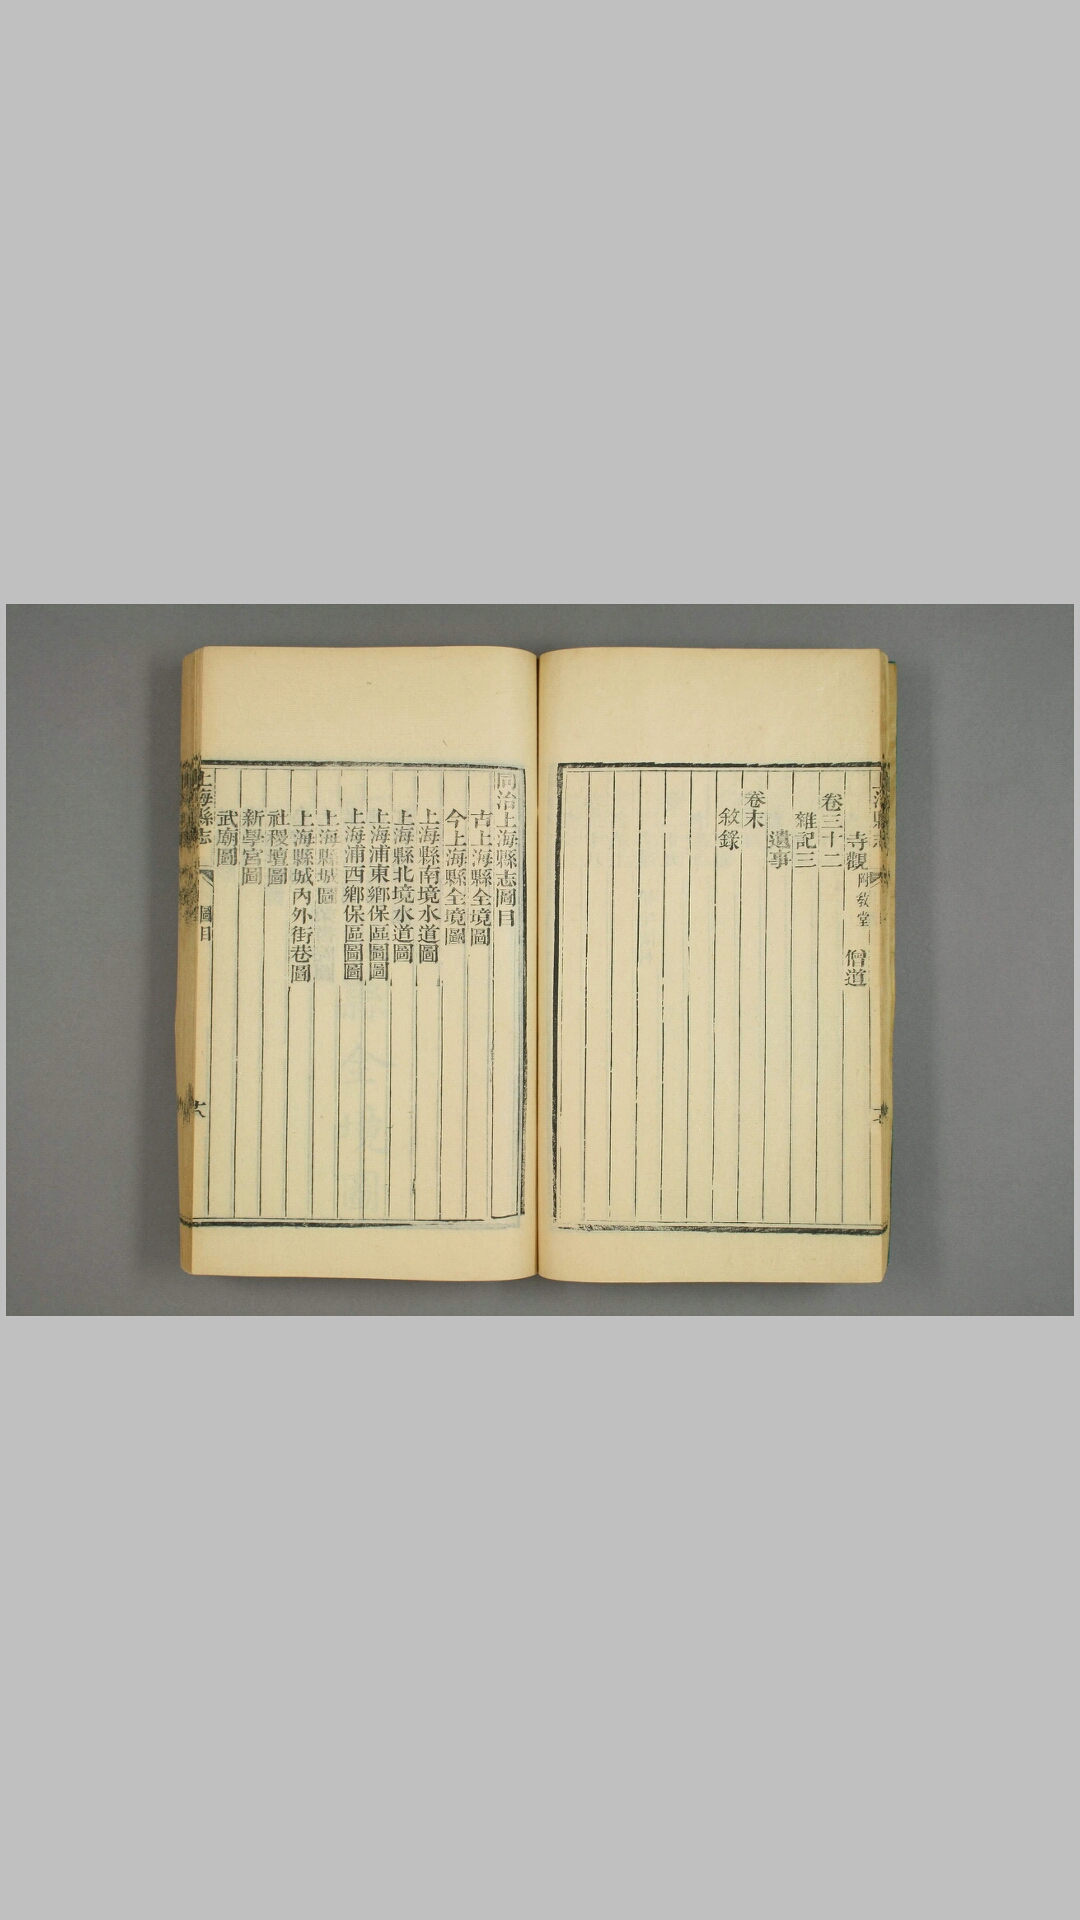 上海縣志
寺觀附教堂 僧道
卷三十二
雜記三
遺事
卷末
敘錄
同治上海縣志圖目
古上海縣全境圖
今上海縣全境圖
上海縣南境水道圖
上海縣北境水道圖
上海浦東鄉保區圖圖
上海浦西鄉保區圖圖
上海縣城圖
上海縣城內外街巷圖
社稷壇圖
新學宮圖
武廟圖
上海縣志
圖目